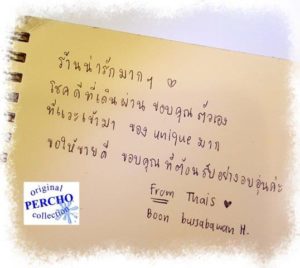 ร้านน่ารักมากๆ ♡
โชคดีที่เดินผ่าน ขอบคุณตัวเอง
ที่แวะเข้ามา ของ unique มาก
ขอให้ขายดี ขอบคุณที่ต้อนรับอย่างอบอุ่นค่ะ
From Thais ♥
Boon bussabawan H.
original
PERCHO
collection